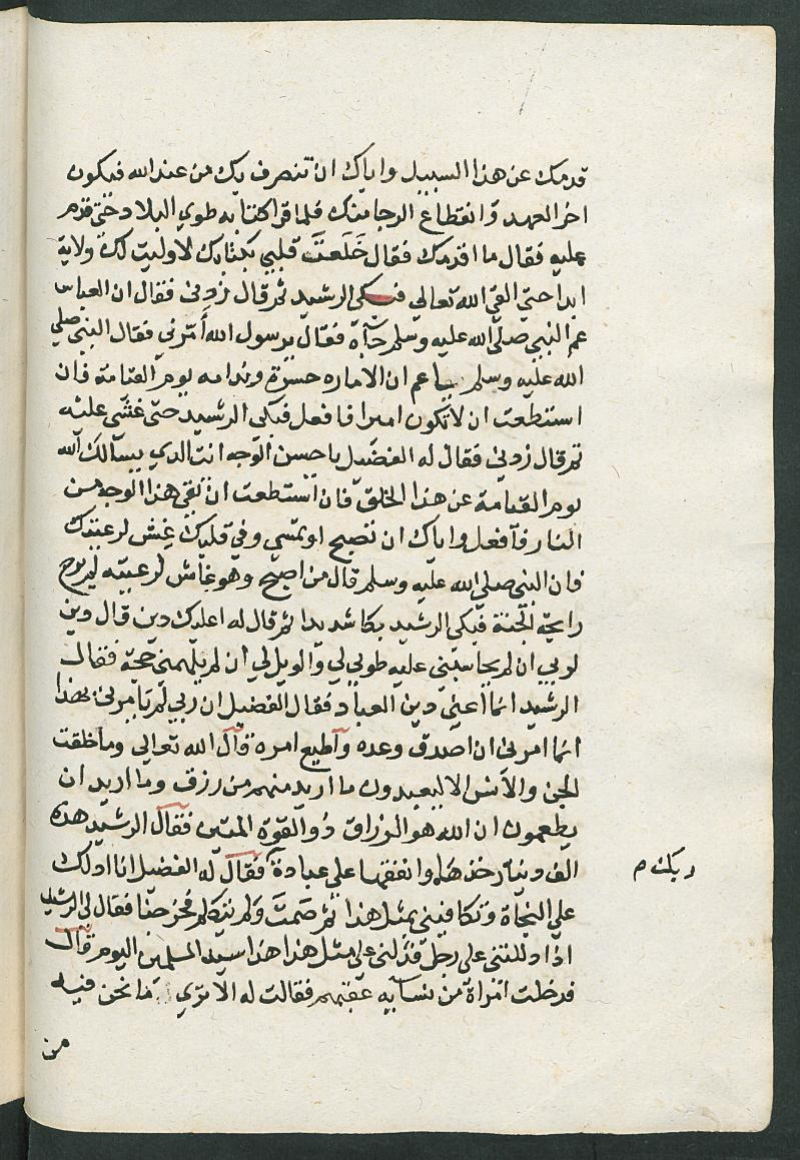 قدمك عن هذا السبيل واياك ان تنصرف بك من عند الله فيكون
اخر العهد وانقطاع الرجا منك فلما قرا كتابه طوي البلاد حتى قدم
عليه فقال ما اقدمك فقال خَلَعتَ قلبي بكتابك لا وليت لك ولاية
ابدا حتي القي الله تعالي فبكي الرشيد ثم قال زدني فقال ان العباس
عم النبي صلى الله عليه وسلم جآه فقال يرسول الله أَمّرني فقال النبي صلي
الله عليه وسلم يا عم ان الاماره حسرة وندامه يوم القيامة فان
استطعت ان لا تكون اميرا فافعل فبكي الرشيد حتى غشي عليه
ثم قال زدني فقال له الفضيل يا حسن الوجه انت الدي يسالك الله
يوم القيامة عن هذا الخلق فان استطعت ان تقي هذا الوجه من
النار فآفعل واياك ان تصبح او تمسي وفي قلبك غِش لرعيتك
فان النبي صلي الله عليه وسلم قال من اصبح وهو غاش لرعيته لم يرح
رايحة الجنة فبكي الرشيد بكا شديدا ثم قال له اعليك دين قال دين
لربي ان لم يحاسبني عليه طوبي لي والويل لي ان لم يلهمني حجة فقال
الرشيد انما اعني دين العباد فقال الفضيل ان ربي لم يامرني بهذا
انما امرني ان اصدق وعده وآطيع امره قال الله تعالي وما خلقت
الجن والانس الا ليعبدون ما اريد منهم من رزق وما اريد ان
يطعمون ان الله هو الرزاق ذو القوة المتين فقال الرشيد هذه
الف دينار خذها وانفقها علي عبادة فقال له الفضيل انا ادلك
ربك م
علي النجاة وتكافيني بمثل هذا ثم صَمتَ ولم يتكلم فخرجنا فقال لي الرشيد
اذا دللتني علي رجل فدلني علي مثل هذا هذا سيد المسلمين اليوم قال
فدخلت امراة من نسآيه عقبهم فقالت له الا تري ما نحن فيه
من